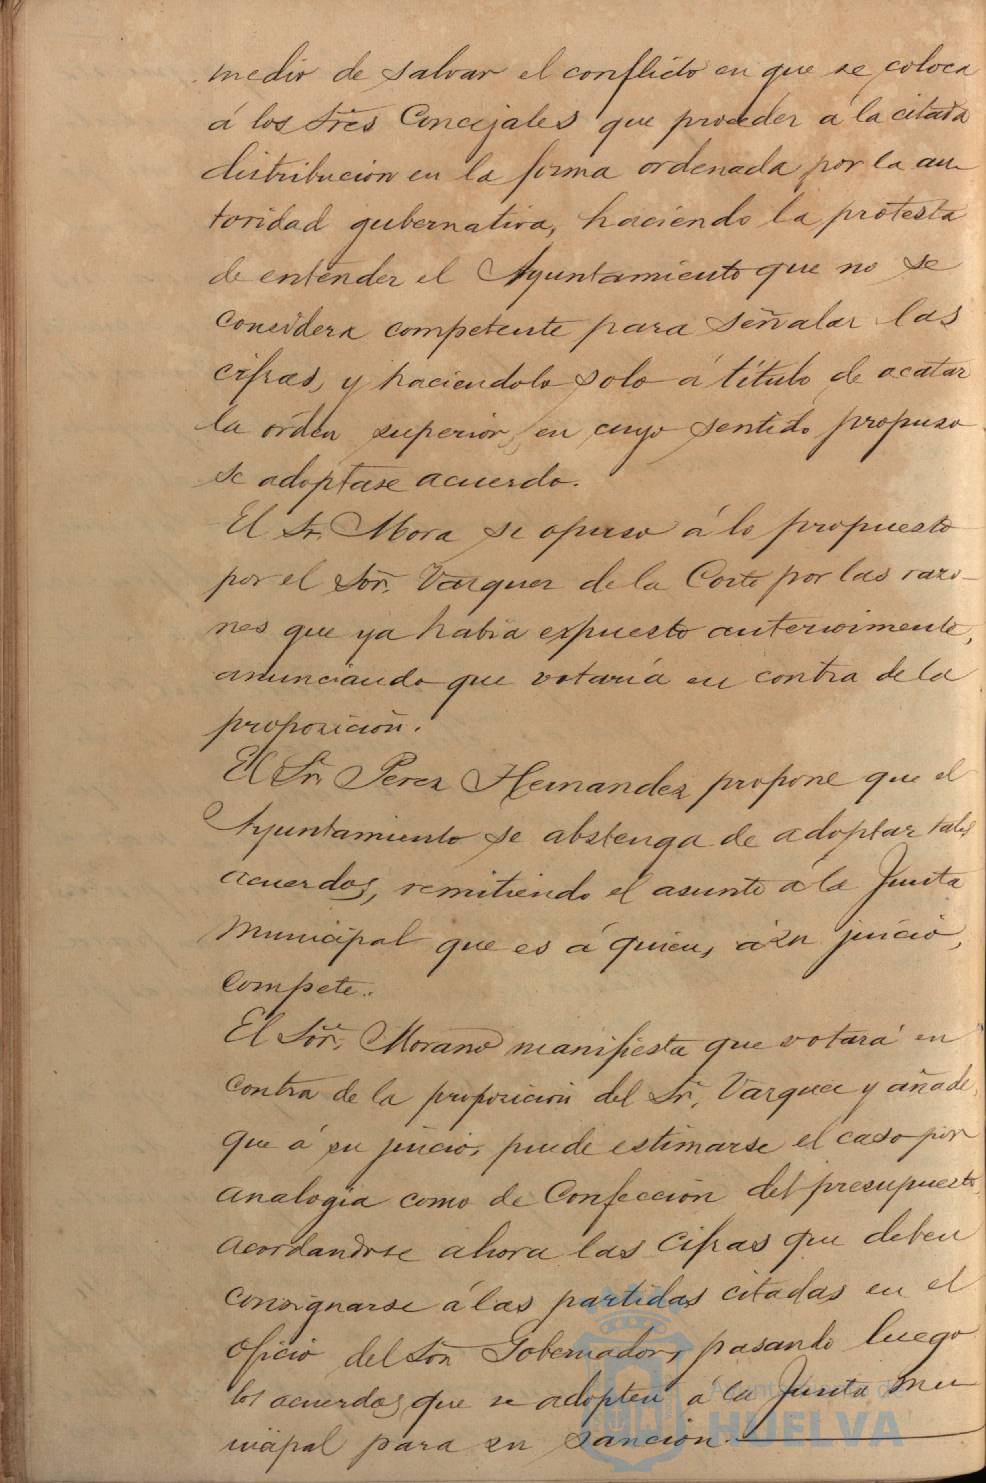 medio de salvar el conflicto en que se coloca
á los Sres Concejales que proceder á la citada
distribucion en la forma ordenada por la au-
toridad gubernativa, haciendo la protesta
de entender el Ayuntamiento que no se
considera competente para señalar las
cifras, y haciendolo solo á título de acatar
la órden superior, en cuyo sentido propuso
se adoptase acuerdo.
El Sr. Mora se opuso á lo propuesto
por el Sor. Vazquez de la Corte por las razo-
nes que ya habia expuesto anteriormente,
anunciando que votaría en contra de la
proposición.
El Sr. Perez Hernandez propone que el
Ayuntamiento se abstenga de adoptar tales
acuerdos, remitiendo el asunto á la Junta
Municipal que es á quien, á su juicio,
compete.
El Sor. Morano manifiesta que votará en
contra de la proposicion del Sr. Vazquez y añade,
que á su juicio, puede estimarse el caso por
analogia como de Confección del presupuesto,
acordandose ahora las cifras que deben
consignarse á las partidas citadas en el
oficio del Sor. Gobernador, pasando luego
los acuerdos que se adopten á la Junta Mu-
nicipal para su sanción.
Ayuntamiento de
HUELVA